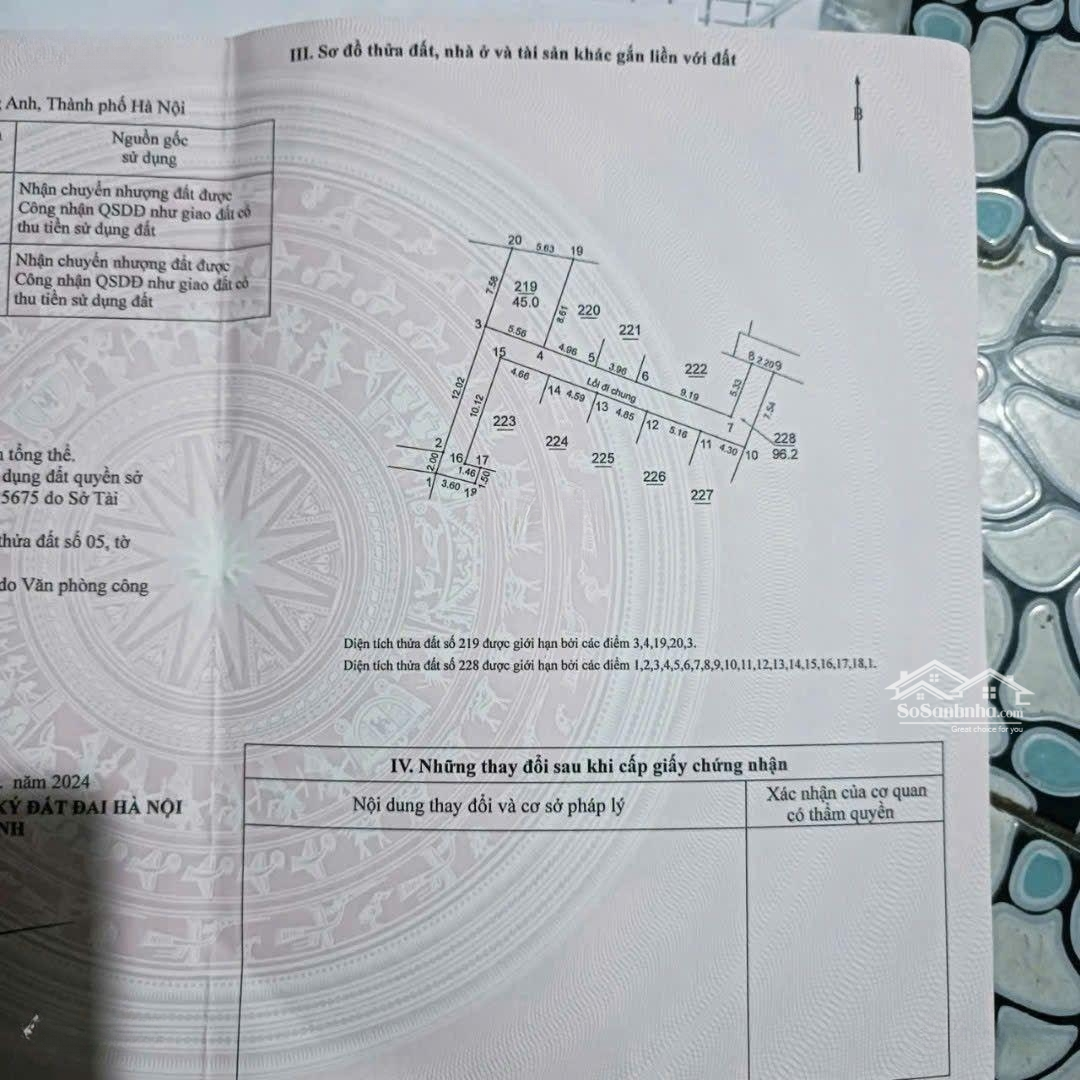 III. Sơ đồ thửa đất, nhà ở và tài sản khác gắn liền với đất
Anh, Thành phố Hà Nội
Nguồn gốc
sử dụng
Nhận chuyển nhượng đất được
Công nhận QSDĐ như giao đất có
thu tiền sử dụng đất
Nhận chuyển nhượng đất được
Công nhận QSDĐ như giao đất có
thu tiền sử dụng đất
B
20 5.63 19
7.58
219
45.0
8.61
220
221
222
3 5.56 4 4.96 5 3.96 6 9.19 7
8 2.20 9
5.33
7.54
Lối đi chung
15 4.66 14 4.59 13 4.85 12 5.16 11 4.30 10
228
96.2
12.02
10.12
223
224
225
226
227
2
16 17
2.00
1.46
1.50
1 3.60
tổng thể.
dụng đất quyền sở
5675 do Sở Tài
thửa đất số 05, tờ
do Văn phòng công
Diện tích thửa đất số 219 được giới hạn bởi các điểm 3,4,19,20,3.
Diện tích thửa đất số 228 được giới hạn bởi các điểm 1,2,3,4,5,6,7,8,9,10,11,12,13,14,15,16,17,18,1.
SoSanhnha.com
Great choice for you
năm 2024
KÝ ĐẤT ĐAI HÀ NỘI
NH
IV. Những thay đổi sau khi cấp giấy chứng nhận
Nội dung thay đổi và cơ sở pháp lý
Xác nhận của cơ quan
có thẩm quyền